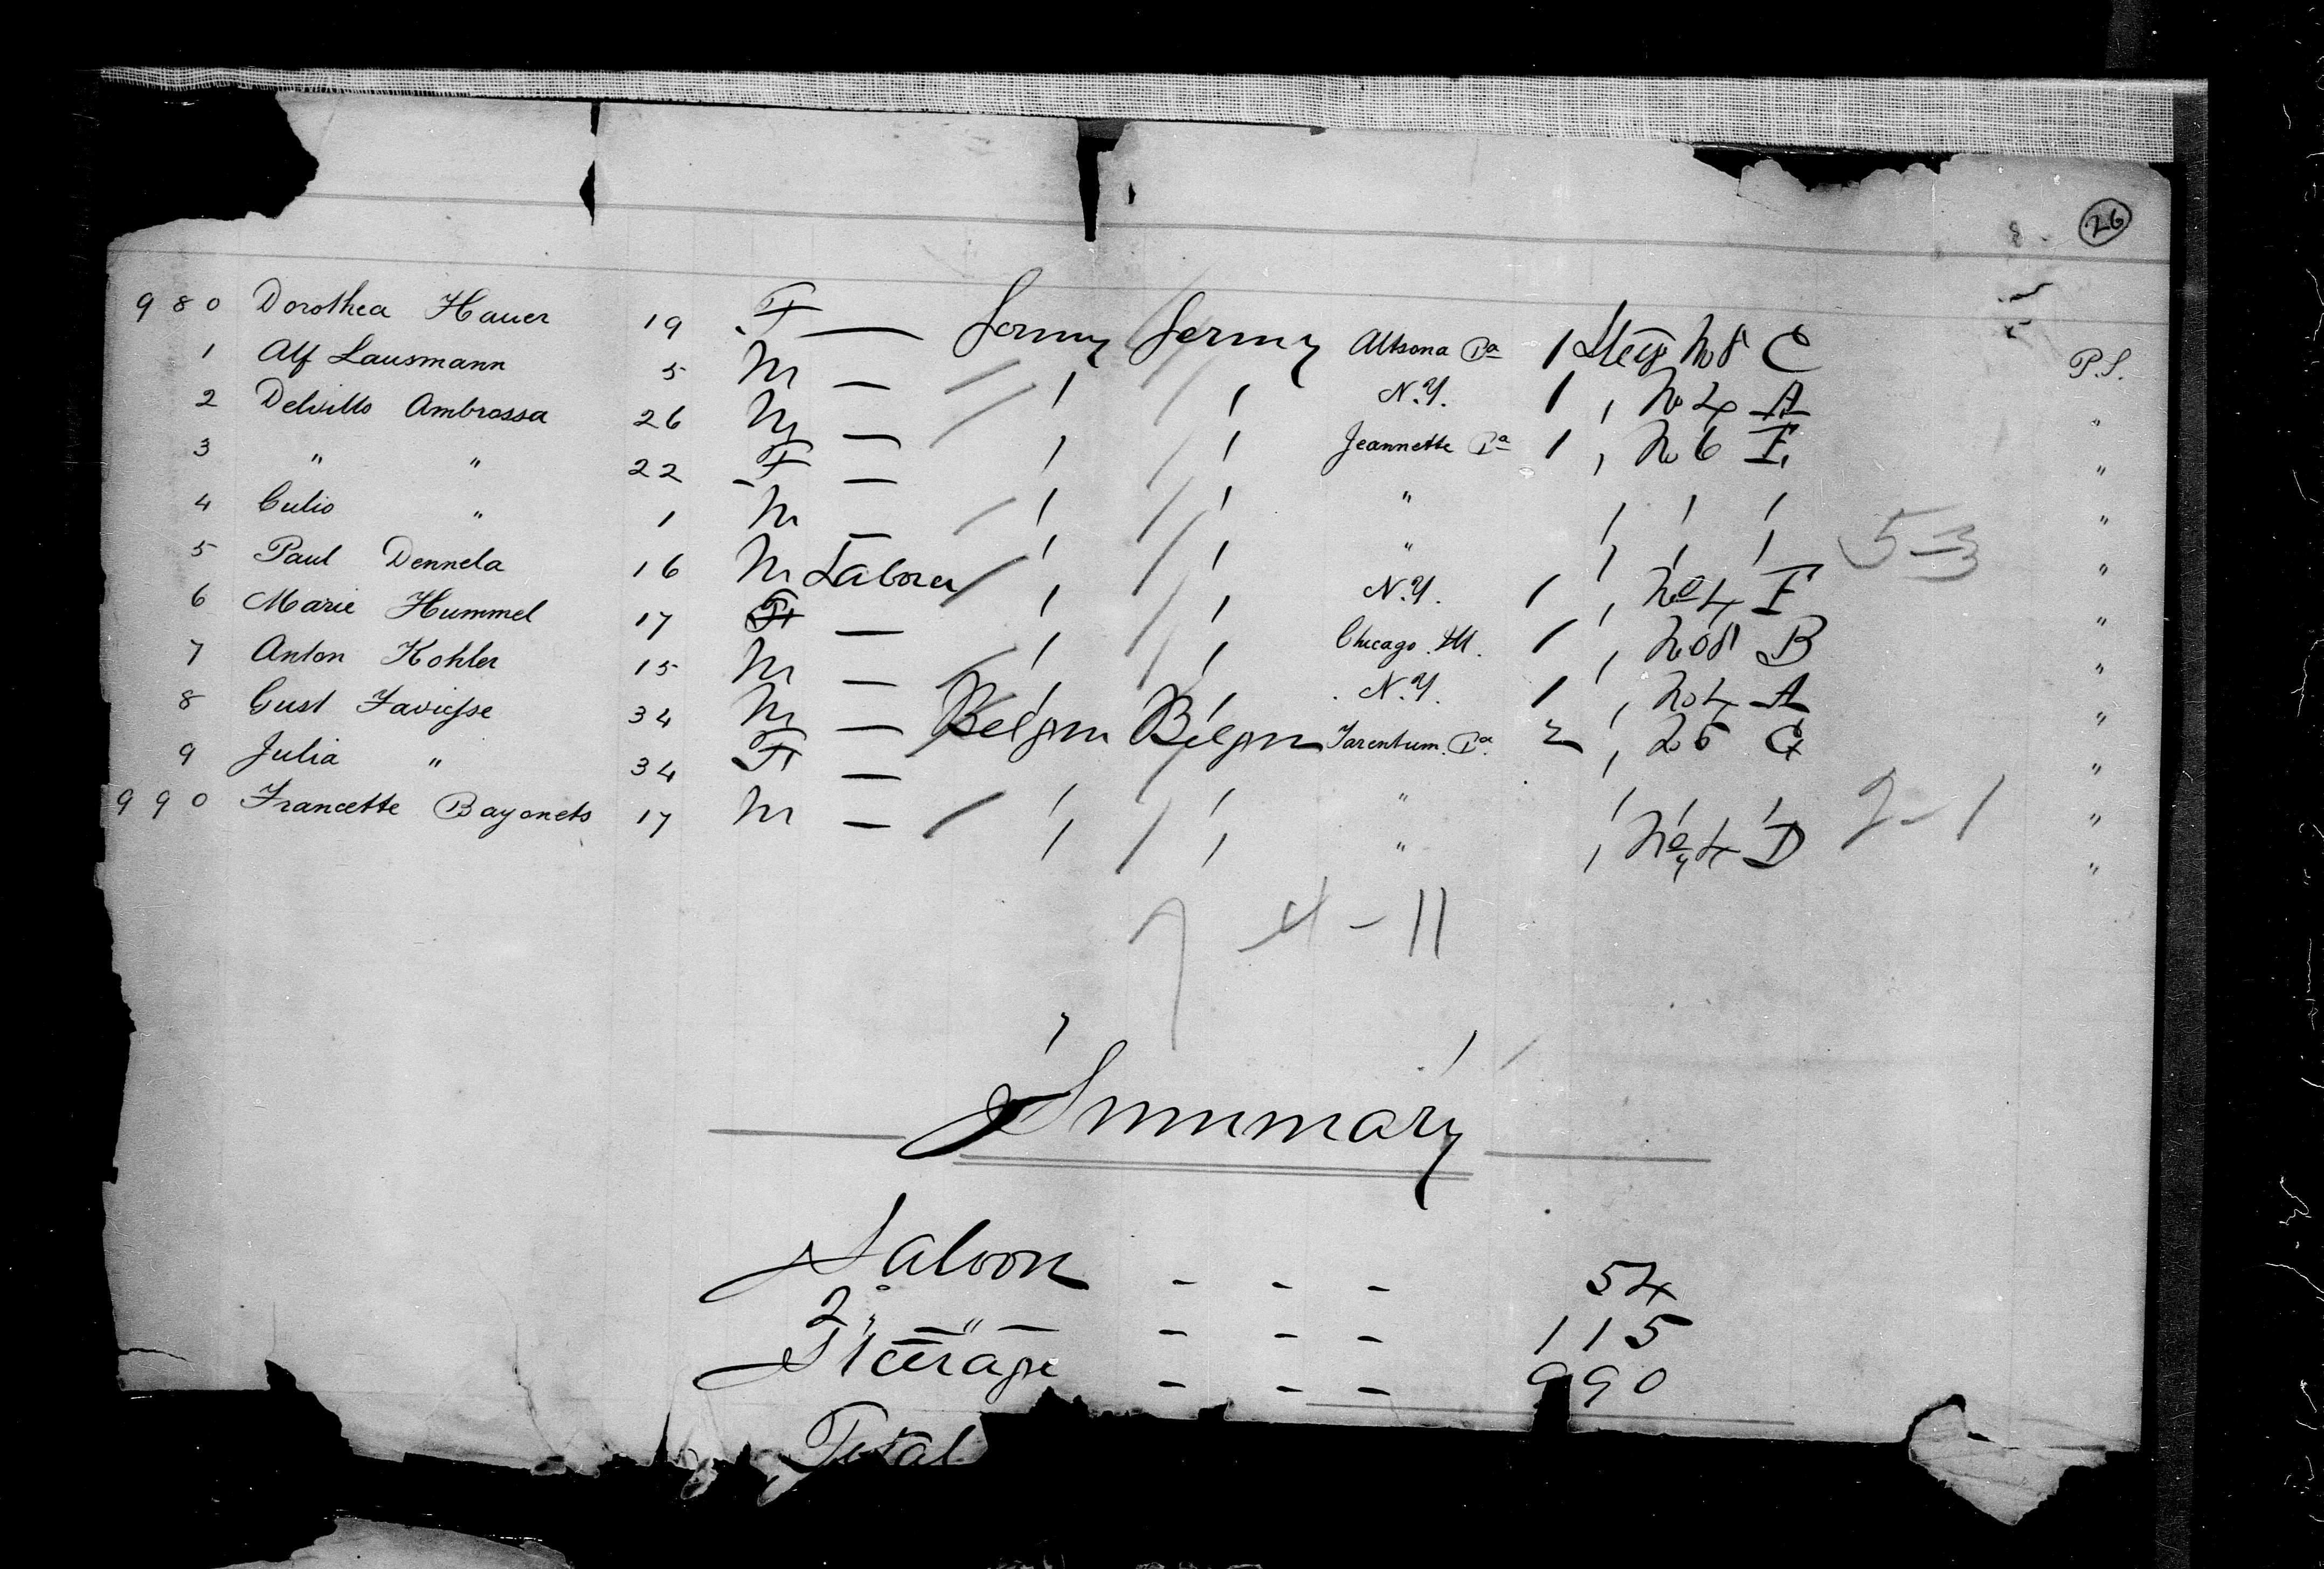 26
980 Dorothea Hauer 19 F — Germy Germy Altoona Pa 1 Steer No 8 C P.S.
1 Alf Lausmann 5 M — / / N.Y. 1 , No 4 A "
2 Delvitto Ambrossa 26 M — / / Jeannette Pa 1 , No 6 F "
3 " " 22 F — / / " / / / "
4 Culio " 1 M — / / " / / / 5-3 "
5 Paul Dennela 16 M Laborer / / N.Y. 1 , No 4 F "
6 Marie Hummel 17 F — / / Chicago. Ill. 1 , No 8 B "
7 Anton Kohler 15 M — / / N.Y. 1 , No 4 A "
8 Gust Faviesse 34 M — Belgm Belgm Tarentum. Pa. 2 , No 6 G "
9 Julia " 34 F — / / " / / / 2-1 "
990 Francette Bayonets 17 M — / / " , No 4 D "
4-11
Summary
Saloon - - - 54
2, — " — - - - 115
Steerage - - - 990
Total